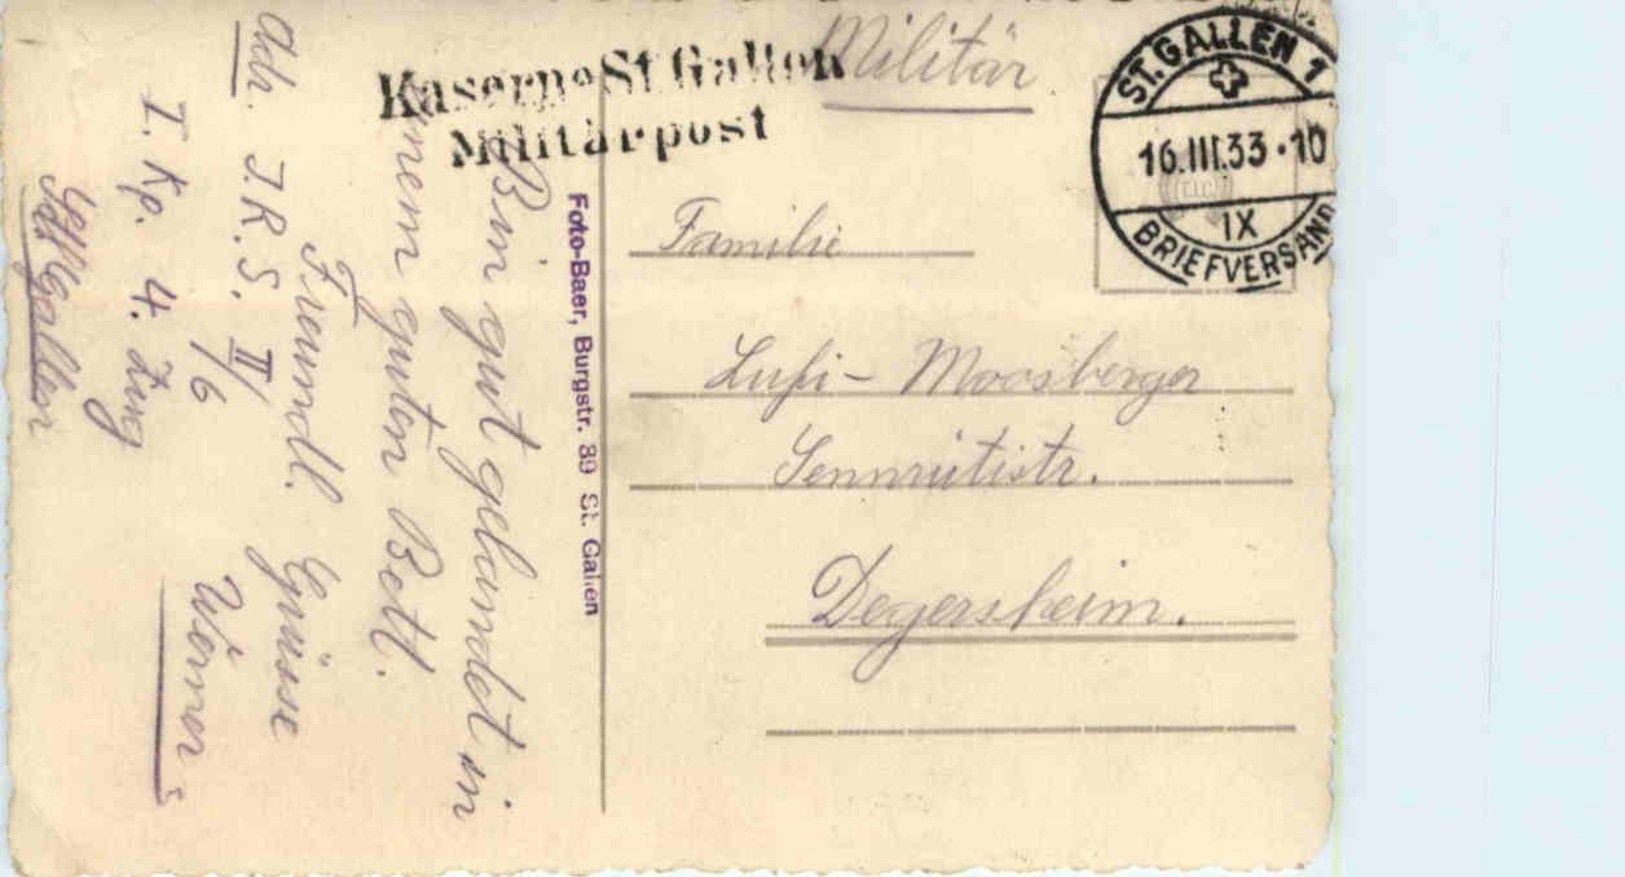 Kaserne St Gallen
Militärpost
Militär
ST. GALLEN 1
16.III.33·10
IX
BRIEFVERSAND
Familie
Moosberger
Degersheim.
Foto-Baer, Burgstr. 39 St. Gallen
Bin gut gelandet in
einem guten Bett.
Freundl. Grüsse
Werner
Adr. I.R.S. II/6
I. Kp. 4. Zug
St. Gallen